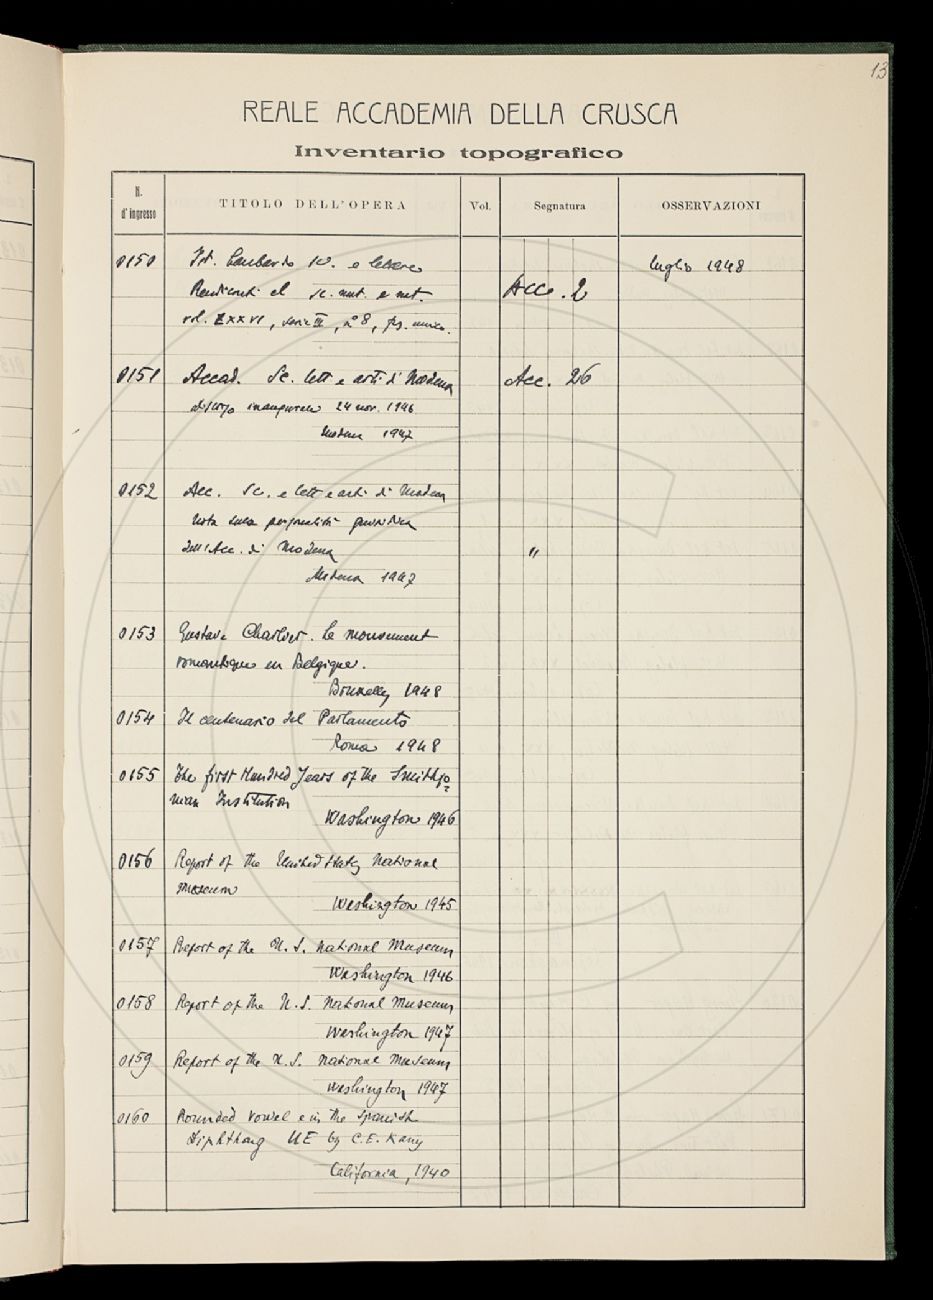 13
REALE ACCADEMIA DELLA CRUSCA
Inventario topografico
N. d'ingresso TITOLO DELL'OPERA Vol. Segnatura OSSERVAZIONI
0150 Ist. Lombardo sc. e lettere luglio 1948
Rendiconti cl. sc. mat. e nat. Acc. 2
vol. LXXVI, serie III, n° 8, fasc. unico.
0151 Accad. Sc. lett e arti di Modena Acc. 26
inaugurale 24 nov. 1946
Modena 1947
0152 Acc. Sc. e lett e arti di Modena
Nota sulla personalità giuridica
dell'Acc. di Modena "
Modena 1947
0153 Gustave Charlier. Le mouvement
romantique en Belgique.
Bruxelles 1948
0154 Il centenario del Parlamento
Roma 1948
0155 The first Hundred Years of the Smithso=
nian Institution
Washington 1946
0156 Report of the United States National
Museum
Washington 1945
0157 Report of the U. S. National Museum
Washington 1946
0158 Report of the U. S. National Museum
Washington 1947
0159 Report of the U. S. National Museum
Washington 1947
0160 Rounded vowel e in the Spanish
Diphthong UE by C. E. Kany
California, 1940